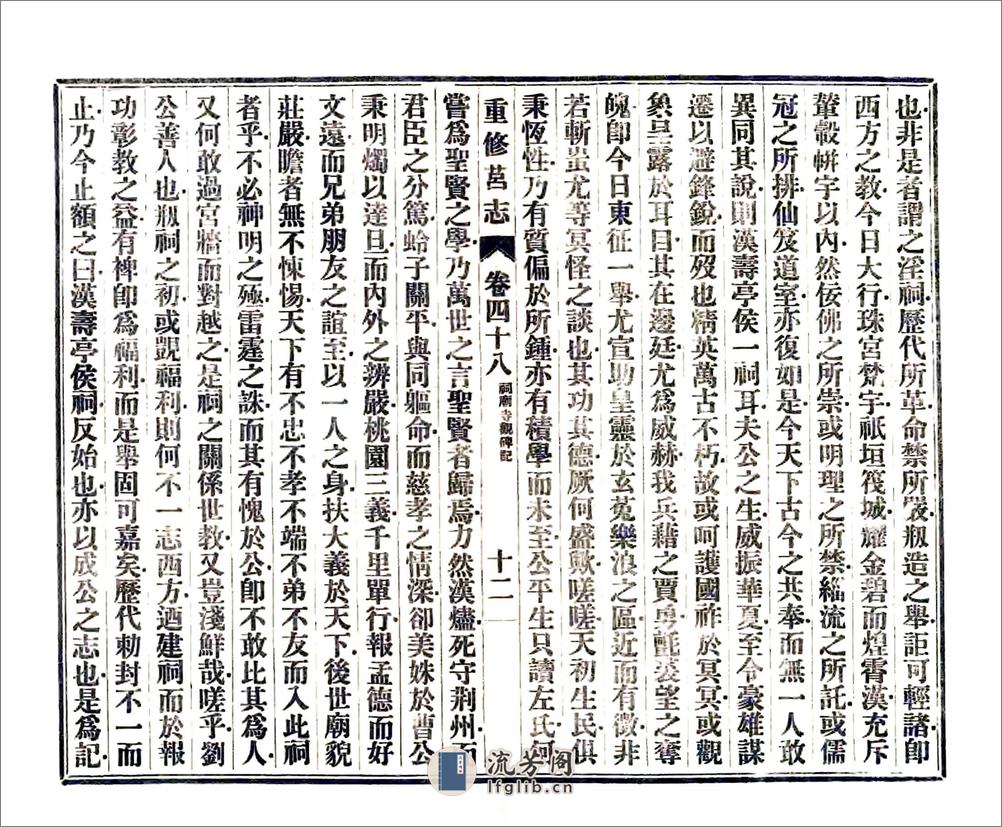 也非是者謂之淫祠歷代所革命禁所嚴剏造之舉詎可輕諸卽
西方之教今日大行珠宮梵宇祇垣筏城耀金碧而煌霄漢充斥
輦轂帡宇以內然佞佛之所崇或明理之所禁緇流之所託或儒
冠之所排仙笈道室亦復如是今天下古今之共奉而無一人敢
異同其說則漢壽亭侯一祠耳夫公之生威振華夏至令豪雄謀
遷以避鋒銳而歿也精英萬古不朽故或呵護國祚於冥冥或觀
象呈露於耳目其在邊廷尤爲威赫我兵藉之賈勇氈裘望之奪
魄卽今日東征一舉尤宣助皇靈於玄菟樂浪之區近而有徵非
若斬蚩尤等冥怪之談也其功其德厥何盛歟嗟嗟天初生民俱
秉恆性乃有質偏於所鍾亦有積學而未至公平生只讀左氏何
重修莒志 卷四十八 祠廟寺觀碑記 十二
嘗爲聖賢之學乃萬世之言聖賢者歸焉力然漢燼死守荆州而
君臣之分篤蛉子關平與同軀命而慈孝之情深卻美姝於曹公
秉明燭以達旦而內外之辨嚴桃園三義千里單行報孟德而好
文遠而兄弟朋友之誼至以一人之身扶大義於天下後世廟貌
莊嚴瞻者無不悚惕天下有不忠不孝不端不弟不友而入此祠
者乎不必神明之殛雷霆之誅而其有愧於公卽不敢比其爲人
又何敢過宮牆而對越之是祠之關係世教又豈淺鮮哉嗟乎劉
公善人也剏祠之初或覬福利則何不一志西方迺建祠而於報
功彰教之益有裨卽爲福利而是舉固可嘉矣歷代勅封不一而
止乃今止額之曰漢壽亭侯祠反始也亦以成公之志也是爲記
流芳阁
lfglib.cn